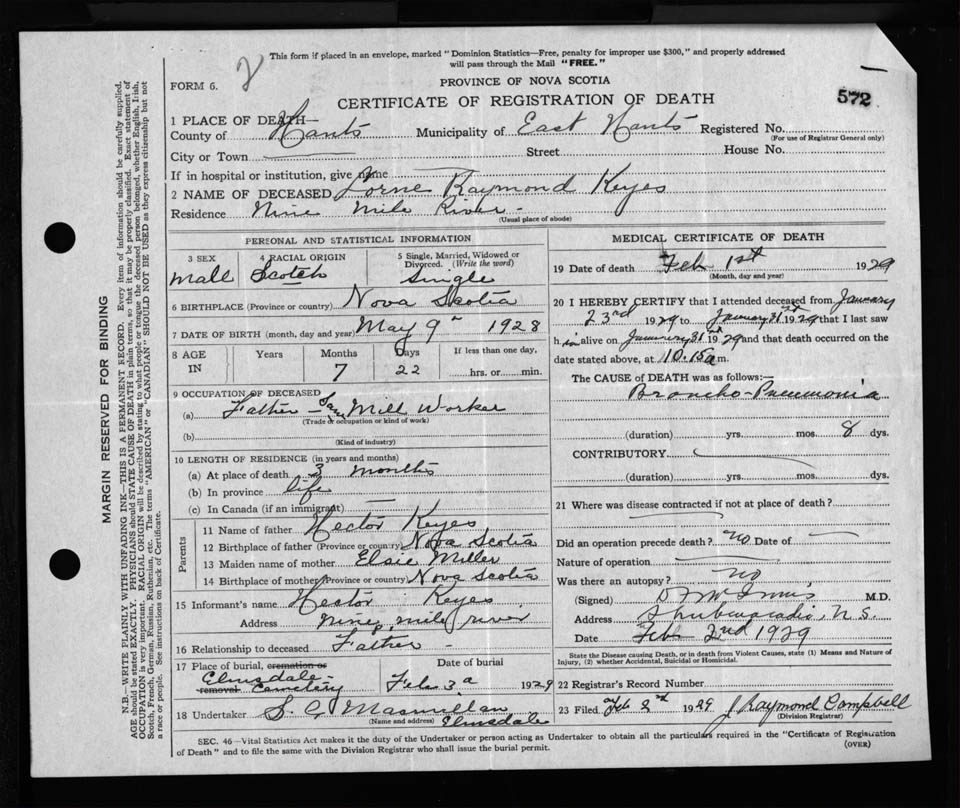 This form if placed in an envelope, marked "Dominion Statistics—Free, penalty for improper use $300," and properly addressed
will pass through the Mail "FREE."
FORM 6.
2
PROVINCE OF NOVA SCOTIA
CERTIFICATE OF REGISTRATION OF DEATH
572
1 PLACE OF DEATH—
County of Hants Municipality of East Hants Registered No.
(For use of Registrar General only)
City or Town Street House No.
If in hospital or institution, give name
2 NAME OF DECEASED Lorne Raymond Keyes
Residence Nine Mile River
(Usual place of abode)
PERSONAL AND STATISTICAL INFORMATION
3 SEX 4 RACIAL ORIGIN 5 Single, Married, Widowed or
Divorced. (Write the word)
Male Scotch Single
6 BIRTHPLACE (Province or country) Nova Scotia
7 DATE OF BIRTH (month, day and year) May 9 1928
8 AGE Years Months Days If less than one day,
IN 7 22 hrs. or min.
9 OCCUPATION OF DECEASED
(a) Father - Saw Mill Worker
(Trade or occupation or kind of work)
(b)
(Kind of industry)
10 LENGTH OF RESIDENCE (in years and months)
(a) At place of death 3 months
(b) In province life
(c) In Canada (if an immigrant)
Parents
11 Name of father Hector Keyes
12 Birthplace of father (Province or country) Nova Scotia
13 Maiden name of mother Elsie Miller
14 Birthplace of mother (Province or country) Nova Scotia
15 Informant's name Hector Keyes
Address Nine mile river
16 Relationship to deceased Father
17 Place of burial, cremation or Date of burial
Elmsdale
removal Cemetery Feb 3 1929
18 Undertaker S. Macmillan
(Name and address) Elmsdale
MEDICAL CERTIFICATE OF DEATH
19 Date of death Feb 1st 1929
(Month, day and year)
20 I HEREBY CERTIFY that I attended deceased from January
23rd 1929 to January 31 1929 that I last saw
h im alive on January 31 1929 and that death occurred on the
date stated above, at 10.15 a m.
The CAUSE of DEATH was as follows:—
Broncho-Pneumonia
(duration) yrs. mos. 8 dys.
CONTRIBUTORY
(duration) yrs. mos. dys.
21 Where was disease contracted if not at place of death?
Did an operation precede death? no Date of
Nature of operation
Was there an autopsy? no
(Signed) M.D.
Address Shubenacadie, N.S.
Date Feb 2nd 1929
State the Disease causing Death, or in death from Violent Causes, state (1) Means and Nature of
Injury, (2) whether Accidental, Suicidal or Homicidal.
22 Registrar's Record Number
23 Filed Feb 2nd 1929 J Raymond Campbell
(Division Registrar)
SEC. 46—Vital Statistics Act makes it the duty of the Undertaker or person acting as Undertaker to obtain all the particulars required in the "Certificate of Registration
of Death" and to file the same with the Division Registrar who shall issue the burial permit.
(OVER)
MARGIN RESERVED FOR BINDING
N.B.—WRITE PLAINLY WITH UNFADING INK—THIS IS A PERMANENT RECORD. Every item of information should be carefully supplied.
AGE should be stated EXACTLY. PHYSICIANS should STATE CAUSE OF DEATH in plain terms, so that it may be properly classified. Exact statement of
OCCUPATION is very important. RACIAL ORIGIN will be described by stating to what people or tongue the deceased person belonged, whether English, Irish,
Scotch, French, German, Russian, Ruthenian, etc. The terms "AMERICAN" or "CANADIAN" SHOULD NOT BE USED as they express citizenship but not
a race or people. See instructions on back of Certificate.